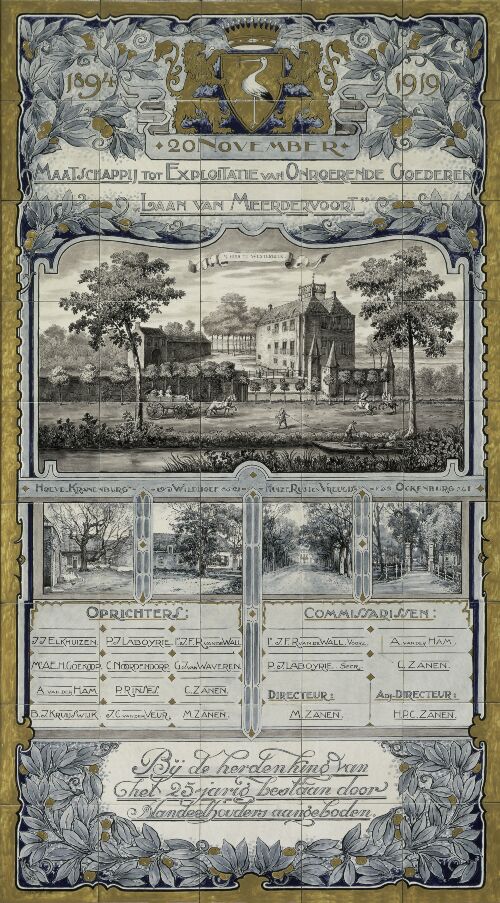 1894 1919
20 NOVEMBER
MAATSCHAPPIJ TOT EXPLOITATIE VAN ONROERENDE GOEDEREN
„LAAN VAN MEERDERVOORT”
HOEVE KRANENBURG WILDHOEF HUIZE RUST EN VREUGD OCKENBURG
OPRICHTERS: COMMISSARISSEN:
J.J. ELKHUIZEN. P.J. LABOYRIE. J.F.R. VAN DE WALL. J.F.R. VAN DE WALL. VOORZ. A. VAN DER HAM.
A.E.H. GOEKOOP. C. NOORDENDORP. G. VAN WAVEREN. P.J. LABOYRIE. SECR. C. ZANEN.
A. VAN DER HAM. P. RINSES C. ZANEN. DIRECTEUR: ADJ-DIRECTEUR:
B.J. KRUIJSWIJK. J.C. VAN DER VEUR. M. ZANEN. M. ZANEN. H.P.C. ZANEN.
Bij de herdenking van
het 25-jarig bestaan door
Aandeelhouders aangeboden.